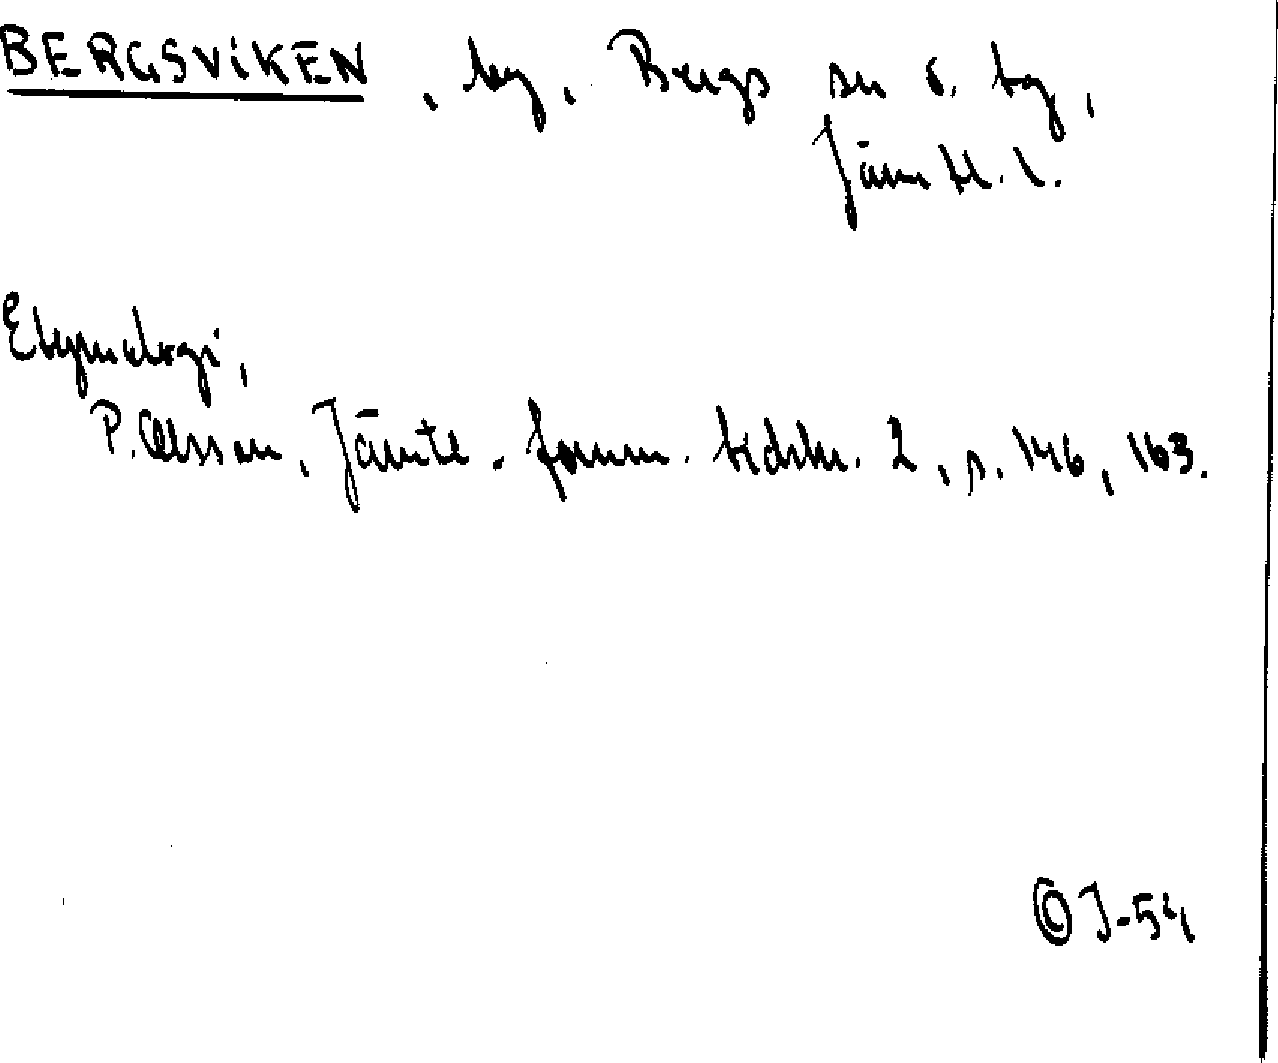 BERGSVIKEN, by, Bergs sn o. tg,
Jämtl. l.
Etymologi,
P. Olsson, Jämtl. fornm. tidskr. 2, s. 146, 163.
© J-54